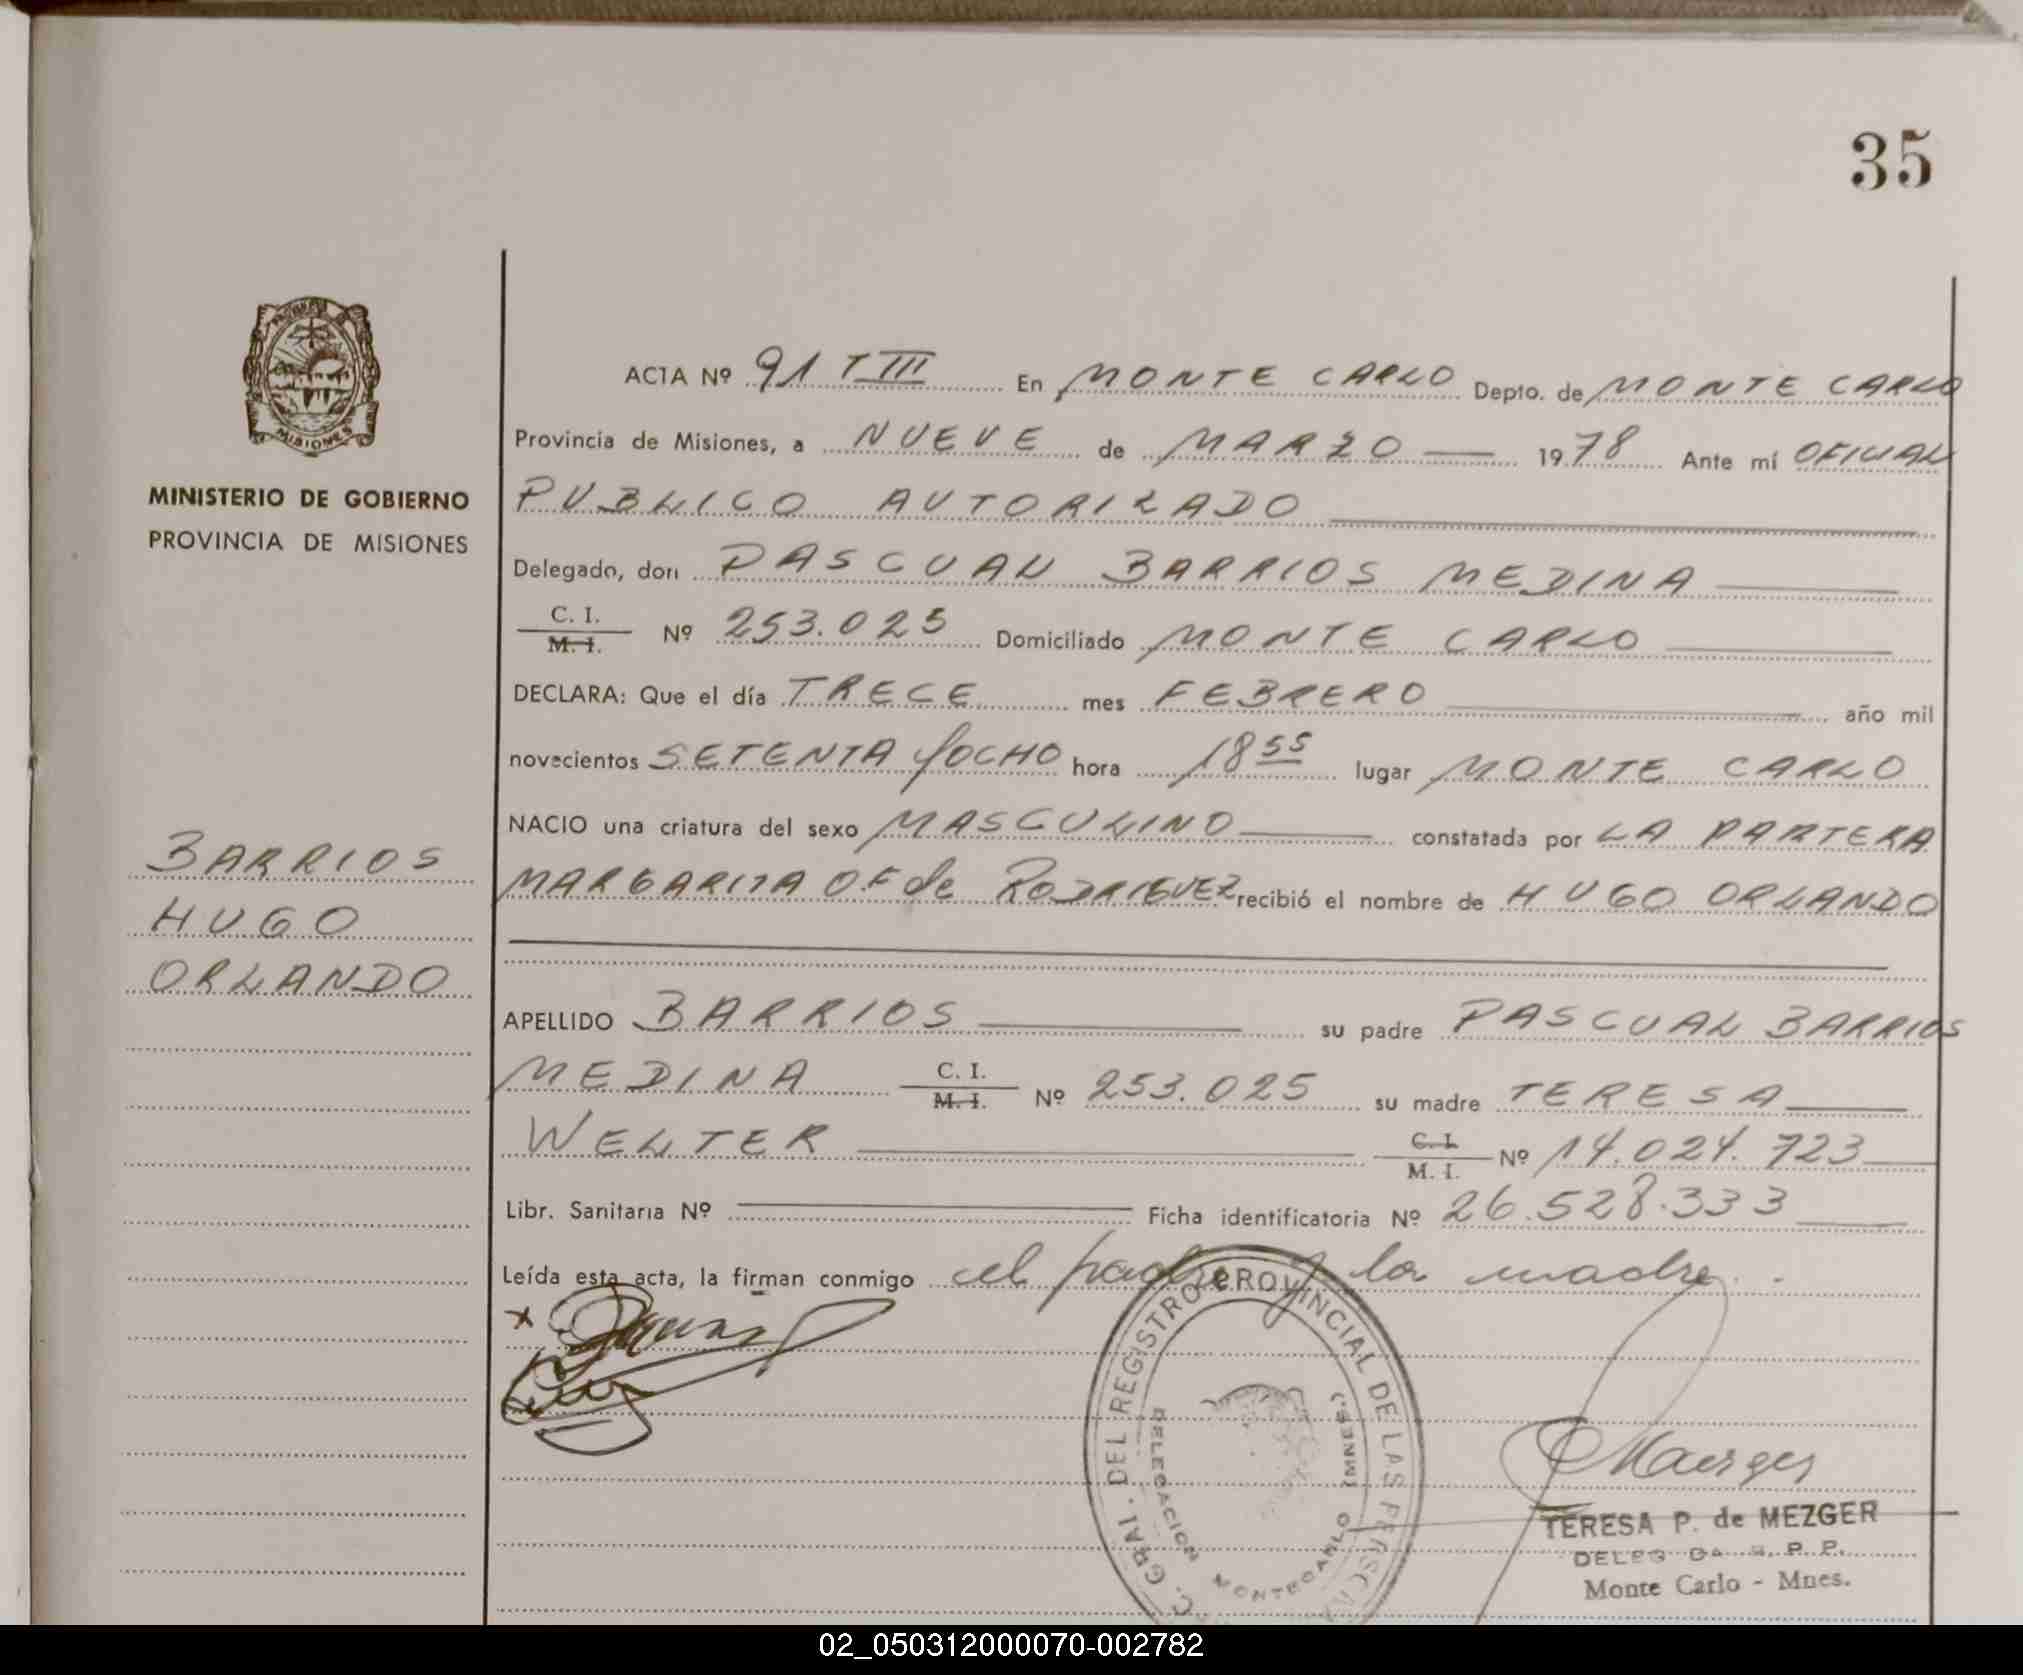 35
ACTA Nº 91 T III En MONTE CARLO Depto. de MONTE CARLO
Provincia de Misiones, a NUEVE de MARZO 1978 Ante mí OFICIAL
PUBLICO AUTORIZADO
Delegado, don PASCUAL BARRIOS MEDINA
C. I.
M. I. Nº 253.025 Domiciliado MONTE CARLO
DECLARA: Que el día TRECE mes FEBRERO año mil
novecientos SETENTA Y OCHO hora 18 55 lugar MONTE CARLO
NACIO una criatura del sexo MASCULINO constatada por LA PARTERA
MARGARITA O.F de RODRIGUEZ recibió el nombre de HUGO ORLANDO
APELLIDO BARRIOS su padre PASCUAL BARRIOS
MEDINA C. I. M. I. Nº 253.025 su madre TERESA
WELTER C. I. M. I. Nº 14.024.723
Libr. Sanitaria Nº Ficha identificatoria Nº 26.528.333
Leída esta acta, la firman conmigo el padre y la madre.
MISIONES
MINISTERIO DE GOBIERNO
PROVINCIA DE MISIONES
BARRIOS
HUGO
ORLANDO
GRAL. DEL REGISTRO PROVINCIAL DE LAS PERSONAS
DELEGACION MONTECARLO (MNES.)
TERESA P. de MEZGER
Monte Carlo - Mnes.
02_050312000070-002782